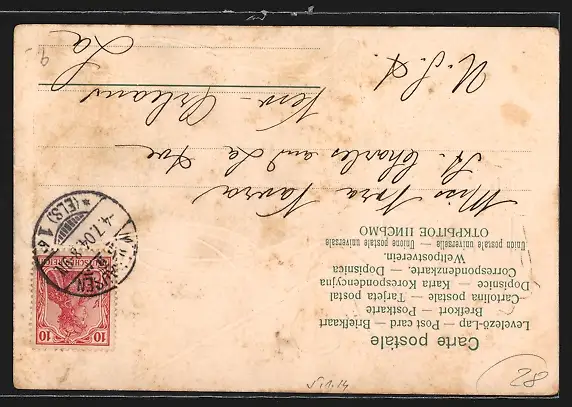 Carte postale
Levelező-Lap — Post card — Briefkaart
Brefkort — Postkarte
Cartolina postale — Tarjeta postal
Dopisnice — Karta Korespondencyjna
Correspondenzkarte. — Dopisnica
Weltpostverein.
Union postale universelle — Unione postale universale
ОТКРЫТОЕ ПИСЬМО
Miss Nora
St. Charles and La Ave
New-Orleans
La
U. S. A.
4.7.04
* (ELS) 1
10 10
28